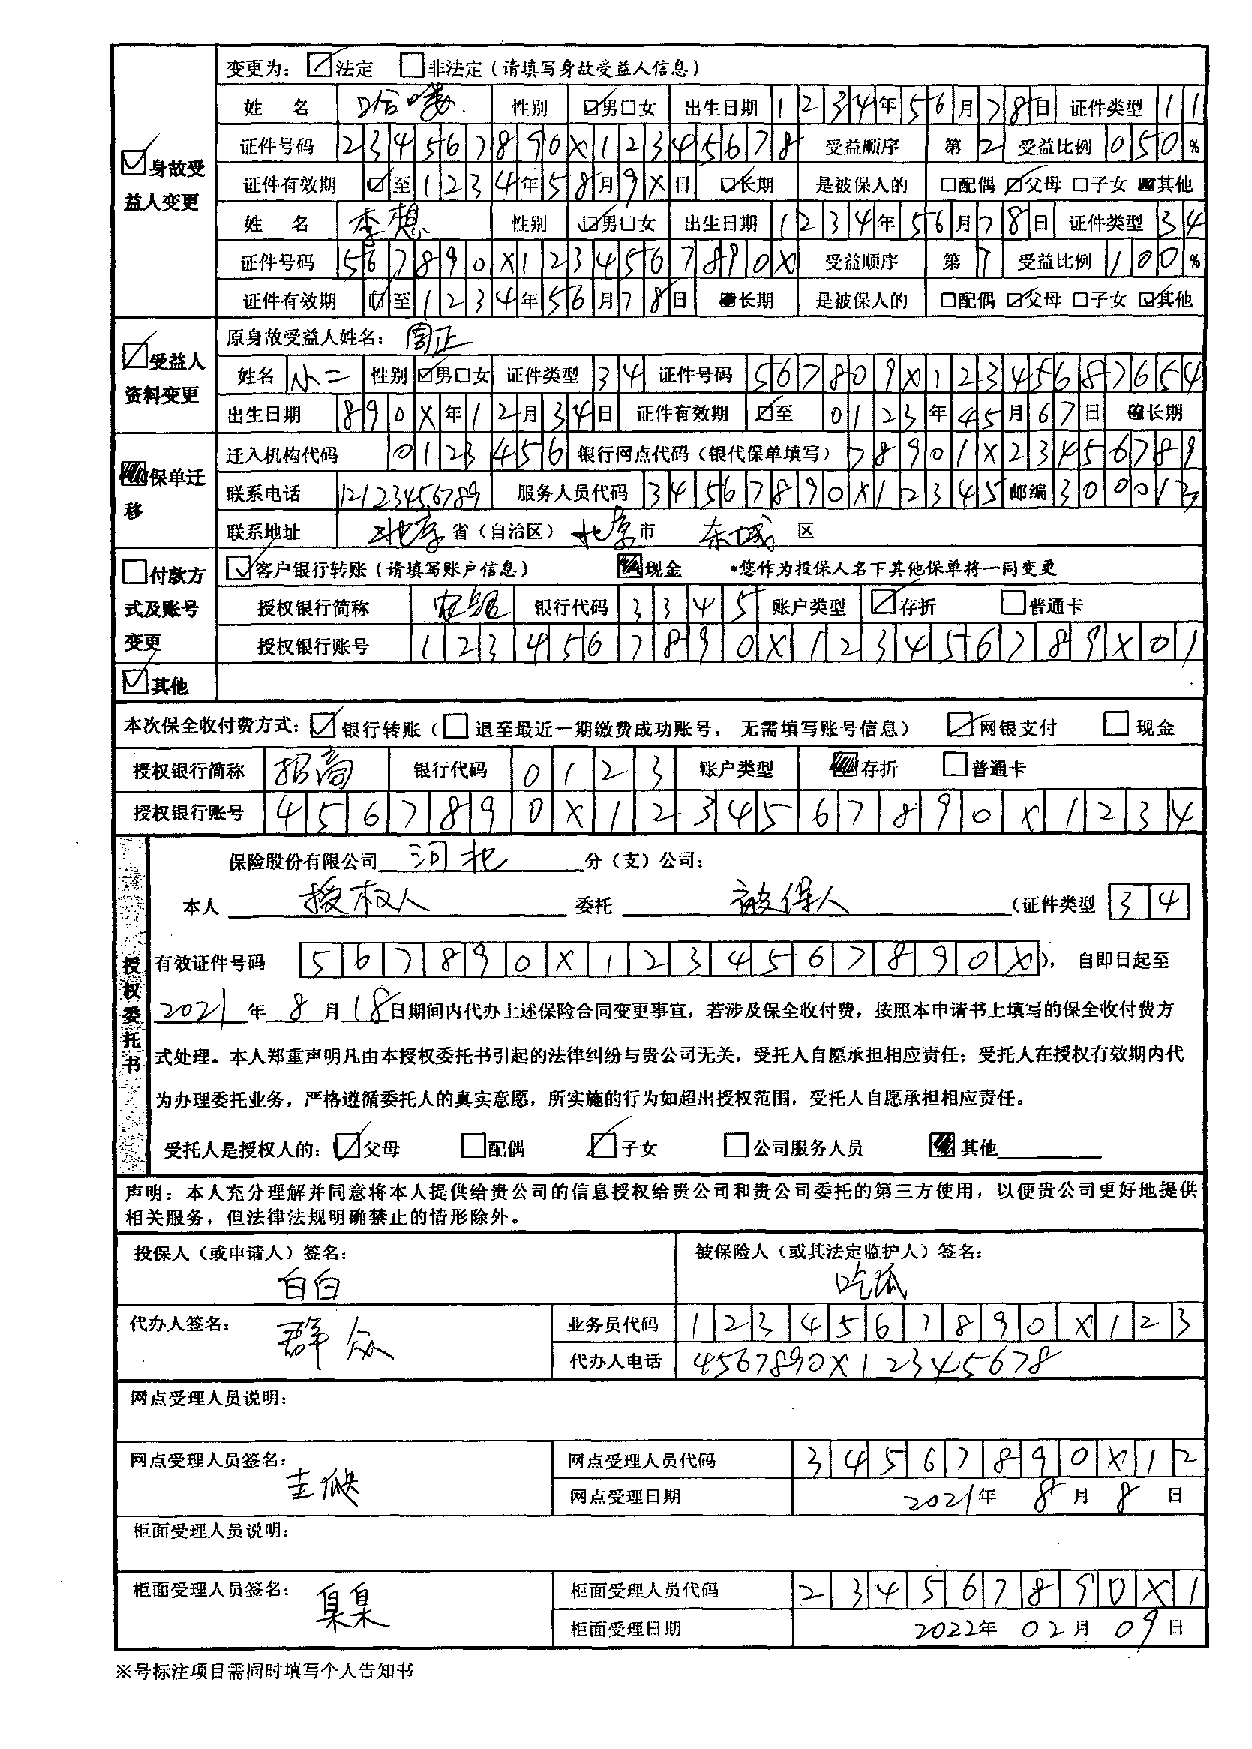 变更为：☑法定 ☐非法定（请填写身故受益人信息）
☑身故受益人变更
姓名 哈喽 性别 ☑男☐女 出生日期 1234年56月78日 证件类型 11
证件号码 234567890X12345678 受益顺序 第2 受益比例 050%
证件有效期 ☑至1234年58月9X日 ☑长期 是被保人的 ☐配偶 ☑父母 ☐子女 ■其他
姓名 李想 性别 ☑男☐女 出生日期 1234年56月78日 证件类型 34
证件号码 567890X1234567890X 受益顺序 第1 受益比例 100%
证件有效期 ☑至1234年56月78日 ■长期 是被保人的 ☐配偶 ☑父母 ☐子女 ☑其他
☑受益人资料变更
原身故受益人姓名：周正
姓名 小二 性别 ☑男☐女 证件类型 34 证件号码 567809X12345687654
出生日期 890X年12月34日 证件有效期 ☑至 0123年45月67日 ■长期
■保单迁移
迁入机构代码 0123456 银行网点代码（银代保单填写）78901X23456789
联系电话 12123456789 服务人员代码 34567890X12345 邮编 300017
联系地址 北京省（自治区） 北京市 东城区
☐付款方式及账号变更
☑客户银行转账（请填写账户信息） ■现金 *您作为投保人名下其他保单将一同变更
授权银行简称 农银 银行代码 3345 账户类型 ☑存折 ☐普通卡
授权银行账号 1234567890X123456789X01
☑其他
本次保全收付费方式：☑银行转账（☐退至最近一期缴费成功账号，无需填写账号信息） ☑网银支付 ☐现金
授权银行简称 招商 银行代码 0123 账户类型 ■存折 ☐普通卡
授权银行账号 4567890X1234567890X1234
授权委托书
保险股份有限公司 河北 分（支）公司：
本人 授权人 委托 被保人 （证件类型 34
有效证件号码 567890X1234567890X），自即日起至
2021年8月18日期间内代办上述保险合同变更事宜，若涉及保全收付费，按照本申请书上填写的保全收付费方
式处理。本人郑重声明凡由本授权委托书引起的法律纠纷与贵公司无关，受托人自愿承担相应责任；受托人在授权有效期内代
为办理委托业务，严格遵循委托人的真实意愿，所实施的行为如超出授权范围，受托人自愿承担相应责任。
受托人是授权人的：☑父母 ☐配偶 ☑子女 ☐公司服务人员 ■其他
声明：本人充分理解并同意将本人提供给贵公司的信息授权给贵公司和贵公司委托的第三方使用，以便贵公司更好地提供
相关服务，但法律法规明确禁止的情形除外。
投保人（或申请人）签名： 被保险人（或其法定监护人）签名：
白白 吃瓜
代办人签名： 群众 业务员代码 1234567890X123
代办人电话 4567890X12345678
网点受理人员说明：
网点受理人员签名： 网点受理人员代码 34567890X12
网点受理日期 2021年8月8日
柜面受理人员说明：
柜面受理人员签名： 臭臭 柜面受理人员代码 234567890X1
柜面受理日期 2022年02月09日
※号标注项目需同时填写个人告知书